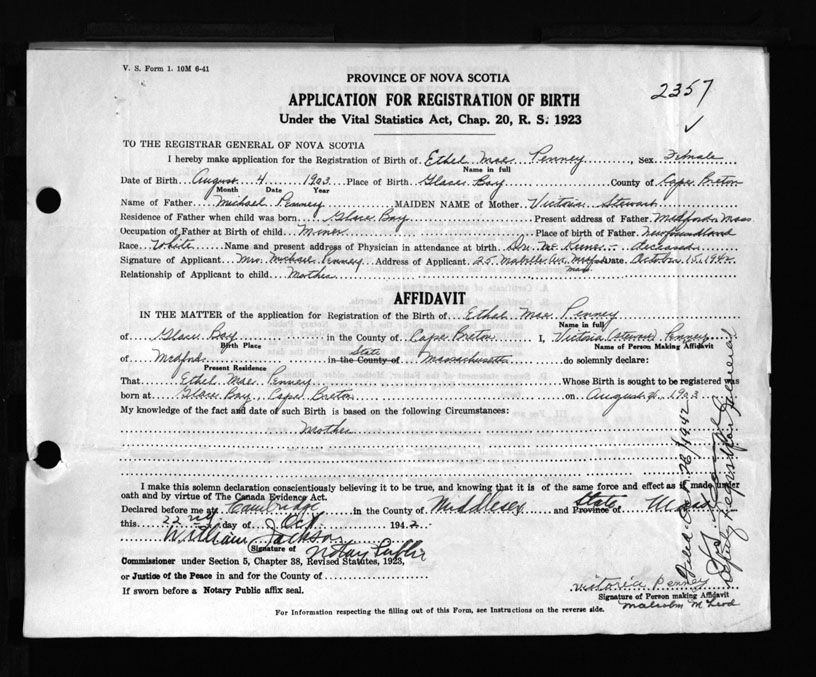 V. S. Form 1. 10M 6-41
PROVINCE OF NOVA SCOTIA
2357
APPLICATION FOR REGISTRATION OF BIRTH
Under the Vital Statistics Act, Chap. 20, R. S. 1923
TO THE REGISTRAR GENERAL OF NOVA SCOTIA
I hereby make application for the Registration of Birth of Ethel Mae Penney, Sex Female
Name in full
Date of Birth August 4 1903 Place of Birth Glace Bay County of Cape Breton
Month Date Year
Name of Father Michael Penney MAIDEN NAME of Mother Victoria Stewart
Residence of Father when child was born Glace Bay Present address of Father Medford Mass
Occupation of Father at Birth of child Miner Place of birth of Father Newfoundland
Race White Name and present address of Physician in attendance at birth Dr. deceased
Signature of Applicant Mrs. Michael Penney Address of Applicant 25 Ave Medford Mass Date October 15, 1942
Relationship of Applicant to child Mother
AFFIDAVIT
IN THE MATTER of the application for Registration of the Birth of Ethel Mae Penney
Name in full
of Glace Bay in the County of Cape Breton I, Victoria (Stewart) Penney
Birth Place Name of Person Making Affidavit
of Medford in the County of State Massachusetts do solemnly declare:
Present Residence
That Ethel Mae Penney Whose Birth is sought to be registered was
born at Glace Bay, Cape Breton on August 4, 1903
My knowledge of the fact and date of such Birth is based on the following Circumstances:
Mother
I make this solemn declaration conscientiously believing it to be true, and knowing that it is of the same force and effect as if made under
oath and by virtue of The Canada Evidence Act.
Declared before me at Cambridge in the County of Middlesex State and Province of Mass
this 22nd day of Oct 1942
William Jackson
Signature of Notary Public
Commissioner under Section 5, Chapter 38, Revised Statutes, 1923,
or Justice of the Peace in and for the County of
If sworn before a Notary Public affix seal.
Victoria Penney
Signature of Person making Affidavit
Malcolm McLeod
For Information respecting the filling out of this Form, see Instructions on the reverse side.
Filed Oct. 26/1942
Deputy Registrar General